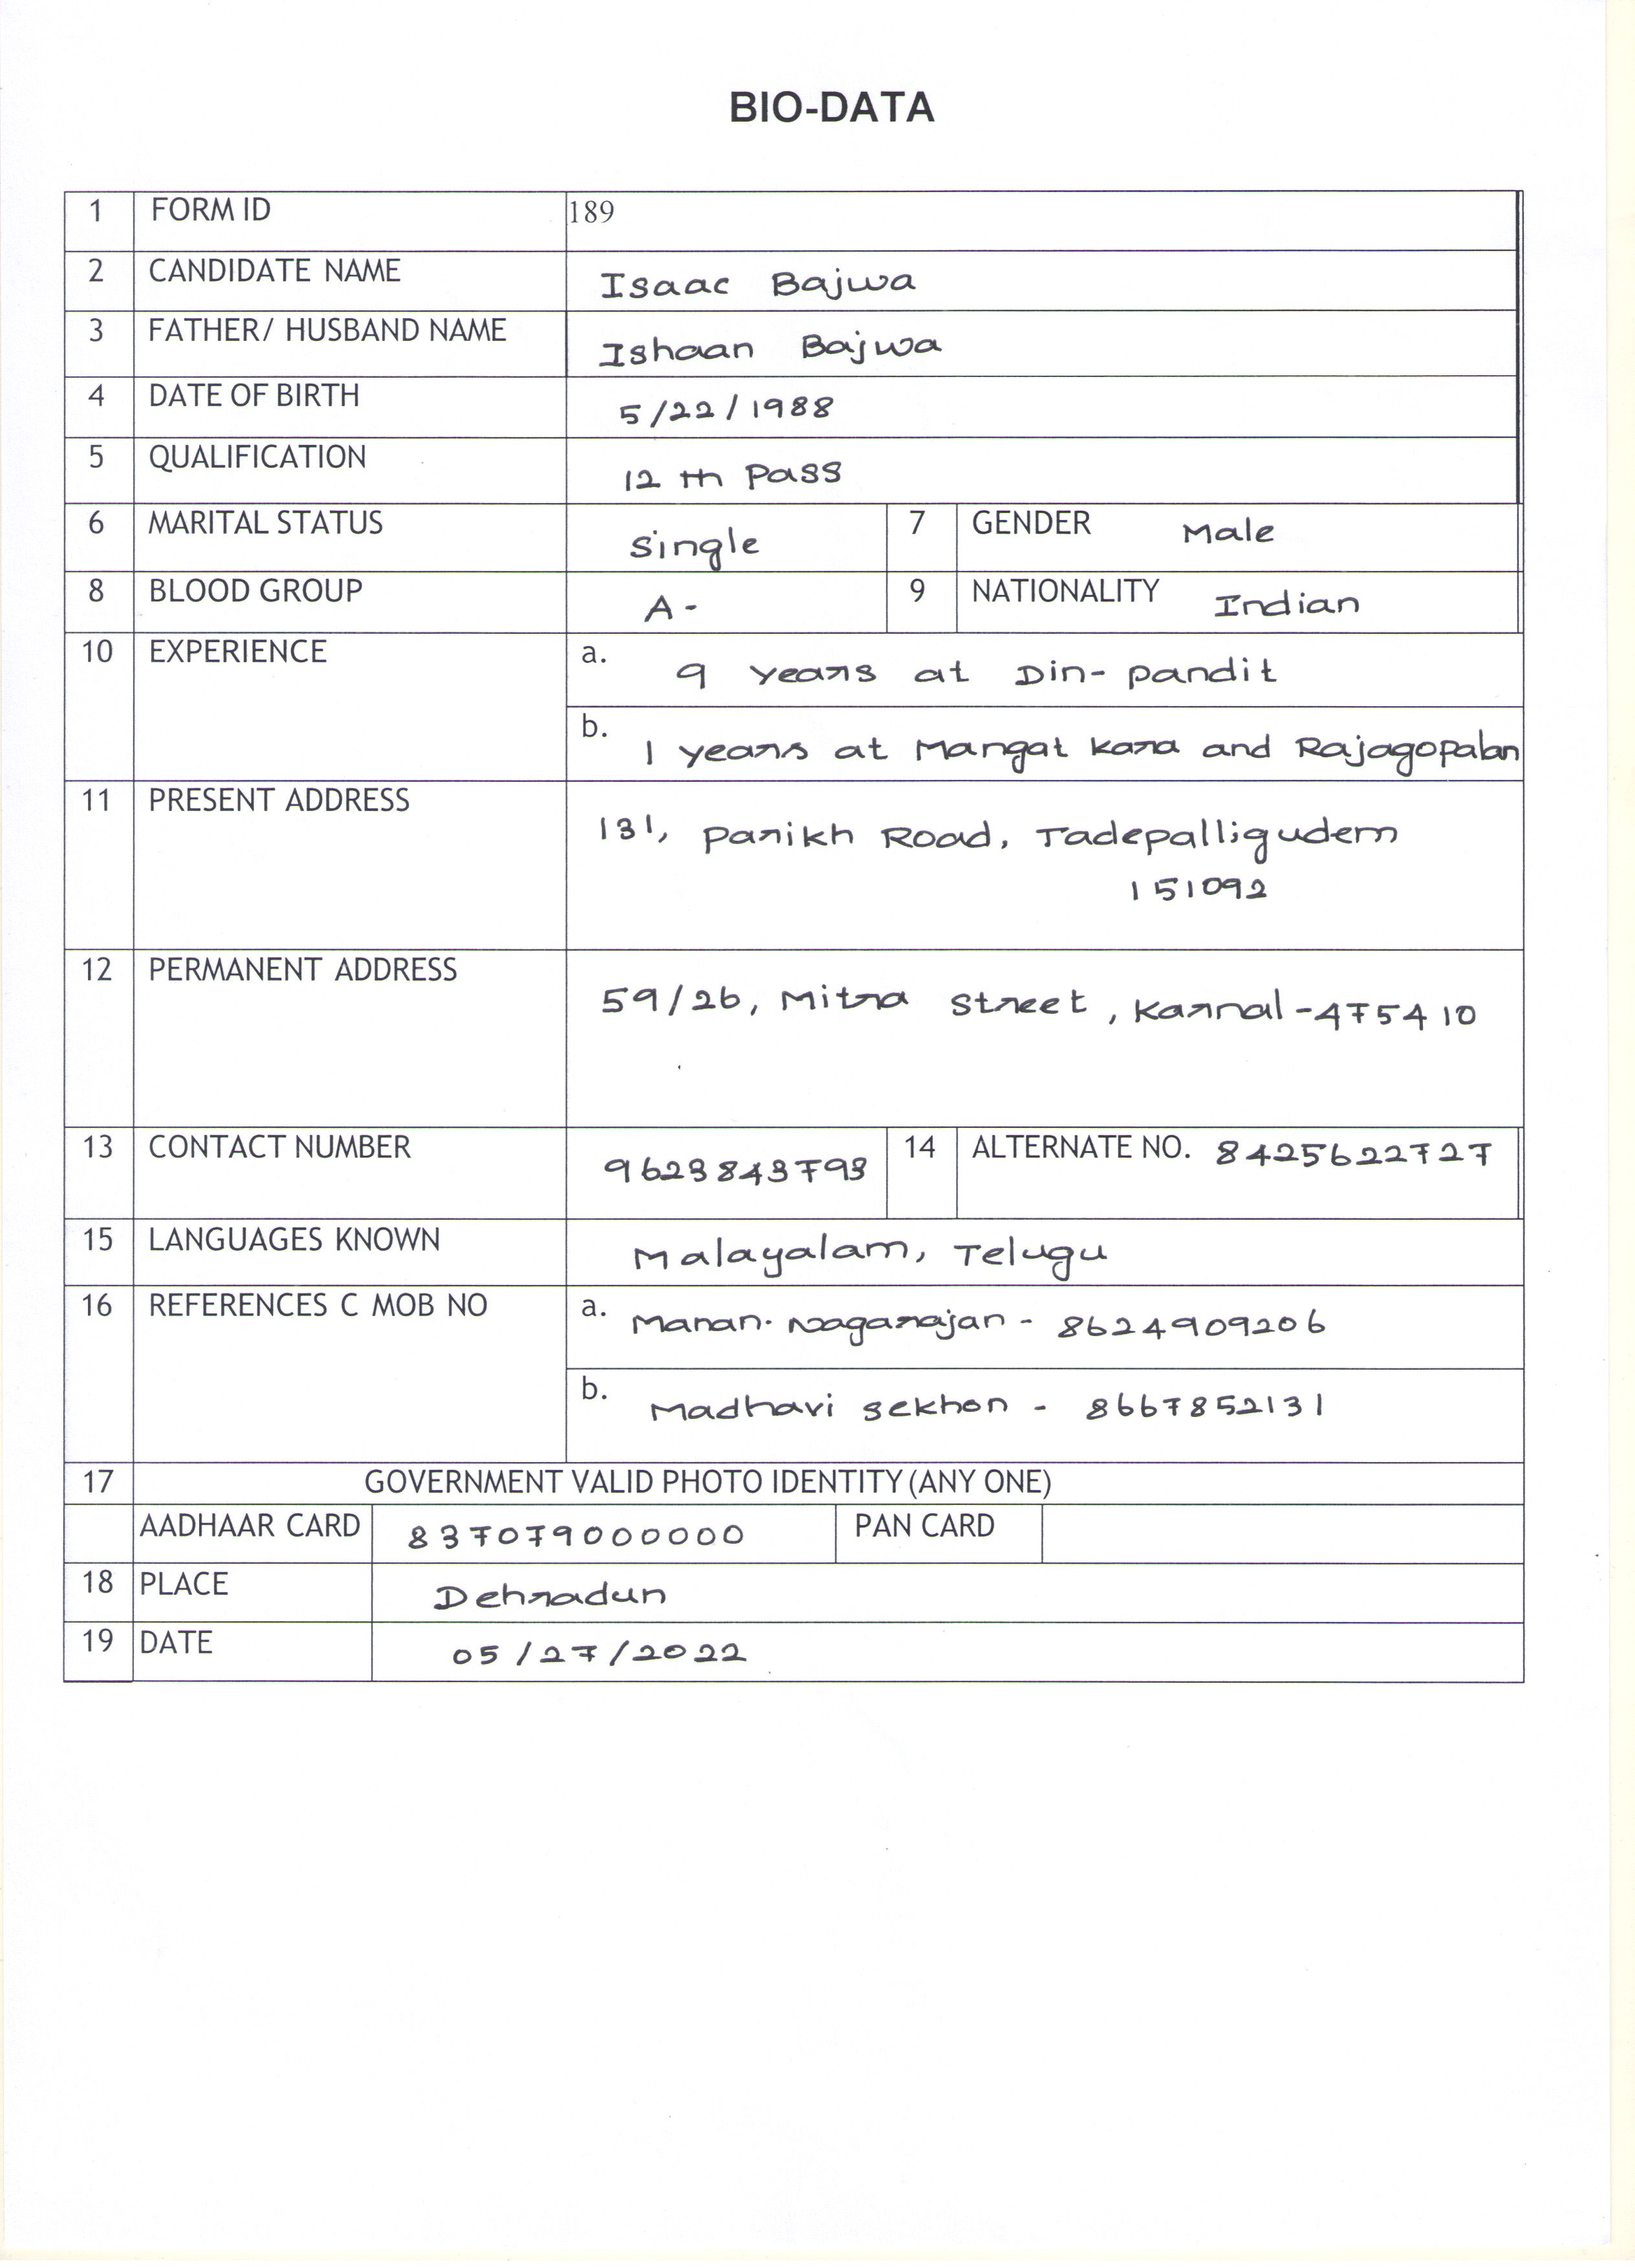 BIO-DATA
1 FORM ID 189
2 CANDIDATE NAME Isaac Bajwa
3 FATHER/ HUSBAND NAME Ishaan Bajwa
4 DATE OF BIRTH 5/22/1988
5 QUALIFICATION 12 th Pass
6 MARITAL STATUS Single 7 GENDER Male
8 BLOOD GROUP A- 9 NATIONALITY Indian
10 EXPERIENCE a. 9 years at Din-pandit
b. 1 years at Mangat Kara and Rajagopalan
11 PRESENT ADDRESS 131, Parikh Road, Tadepalligudem
151092
12 PERMANENT ADDRESS 59/26, Mitra Street, Karnal-475410
13 CONTACT NUMBER 9623843793 14 ALTERNATE NO. 8425622727
15 LANGUAGES KNOWN Malayalam, Telugu
16 REFERENCES C MOB NO a. Manan. Nagarajan - 8624909206
b. Madhavi sekhon - 8667852131
17 GOVERNMENT VALID PHOTO IDENTITY (ANY ONE)
AADHAAR CARD 837079000000 PAN CARD
18 PLACE Dehradun
19 DATE 05/27/2022